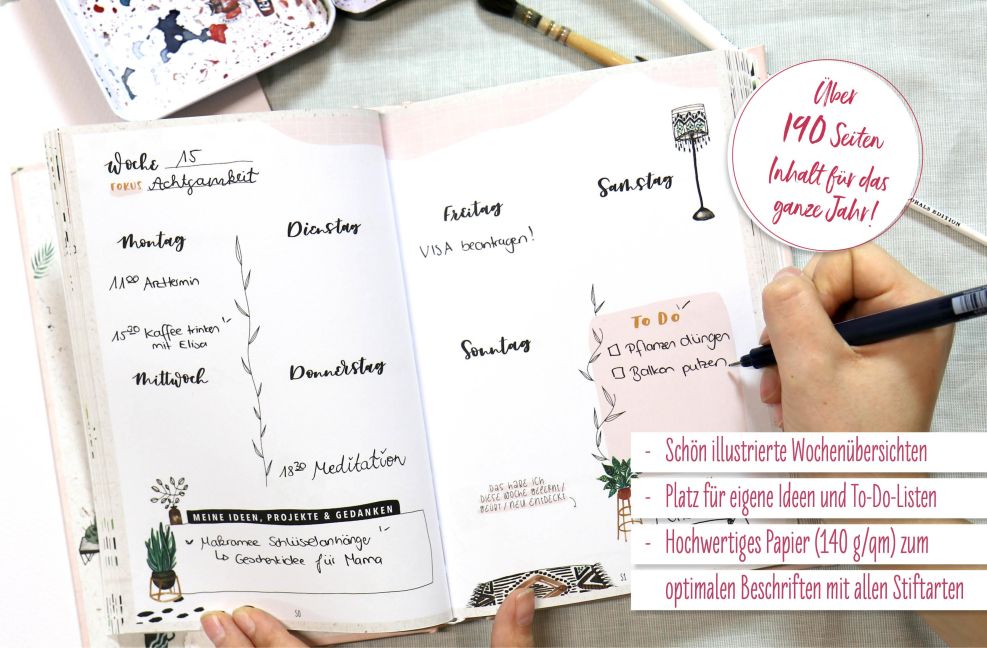 Woche 15
FOKUS Achtsamkeit
Montag
11 00 Arzttermin
15 30 Kaffee trinken
mit Elisa
Mittwoch
Dienstag
Donnerstag
18 30 Meditation
MEINE IDEEN, PROJEKTE & GEDANKEN
Makramee Schlüsselanhänger
↳ Geschenkidee für Mama
50
Freitag
VISA beantragen!
Samstag
Sonntag
To Do
Pflanzen düngen
Balkon putzen
DAS HABE ICH
DIESE WOCHE GELERNT/
GEÜBT/NEU ENTDECKT
51
Über
190 Seiten
Inhalt für das
ganze Jahr!
ORALS EDITION
- Schön illustrierte Wochenübersichten
- Platz für eigene Ideen und To-Do-Listen
- Hochwertiges Papier (140 g/qm) zum
optimalen Beschriften mit allen Stiftarten